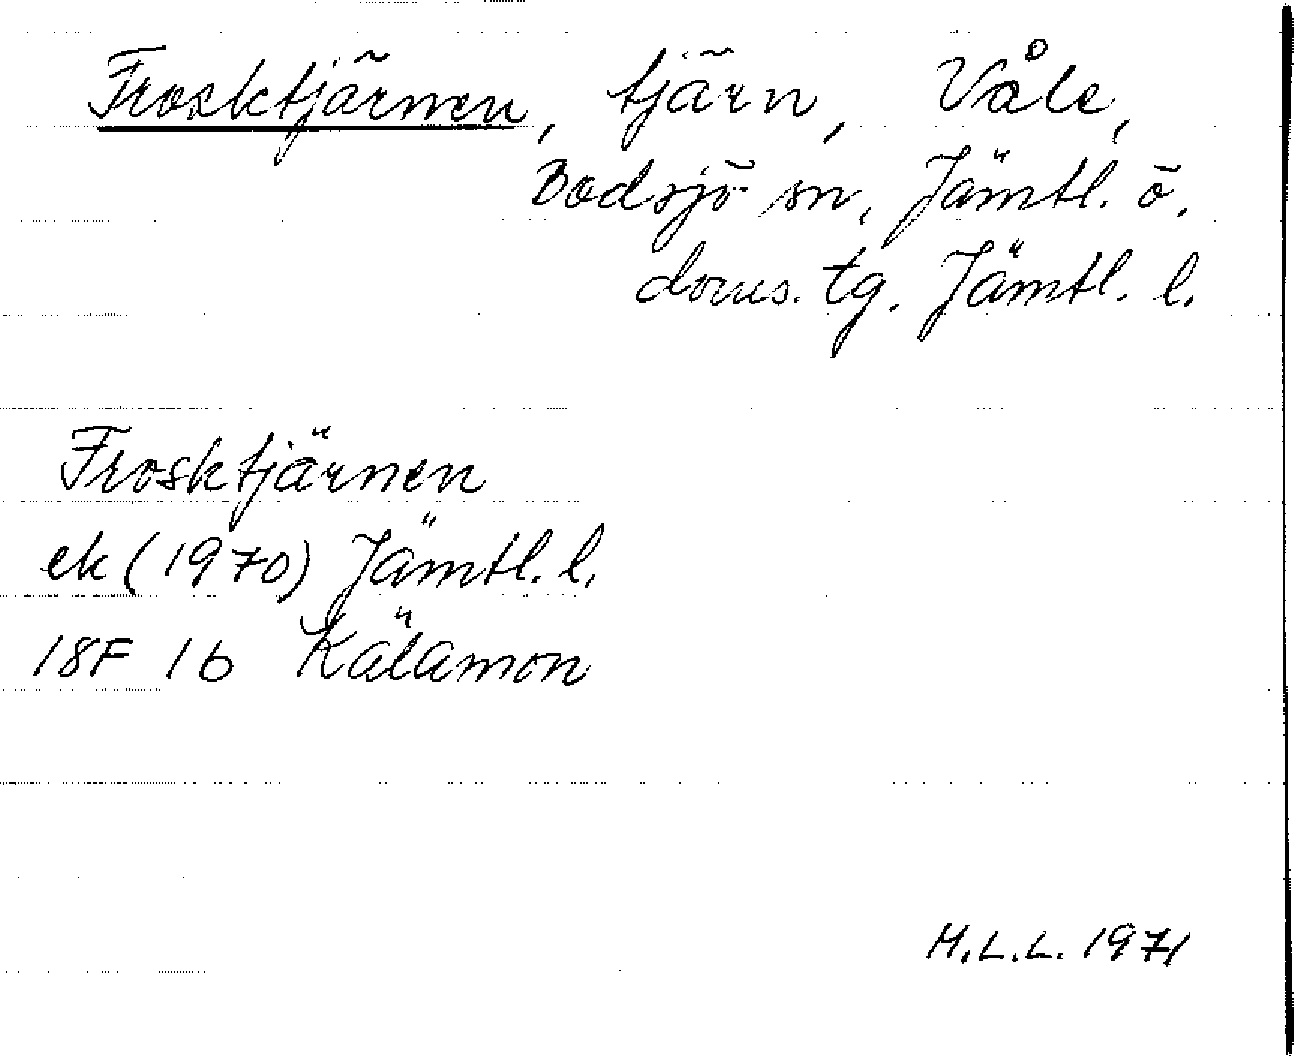 Frosktjärnen, tjärn, Våle,
Bodsjö sn, Jämtl. ö.
doms. tg. Jämtl. l.
Frosktjärnen
ek (1970) Jämtl. l.
18F 1b Kälamon
M.L.L. 1971